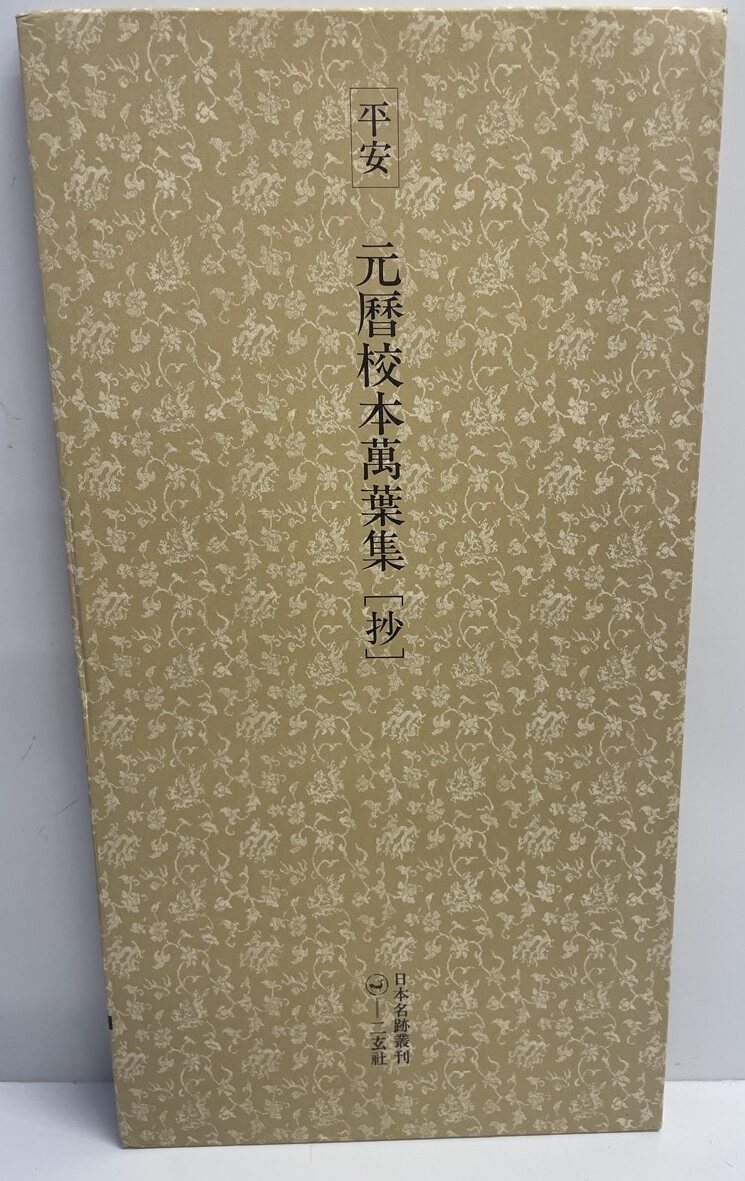 平安
元暦校本萬葉集［抄］
日本名跡叢刊
二玄社